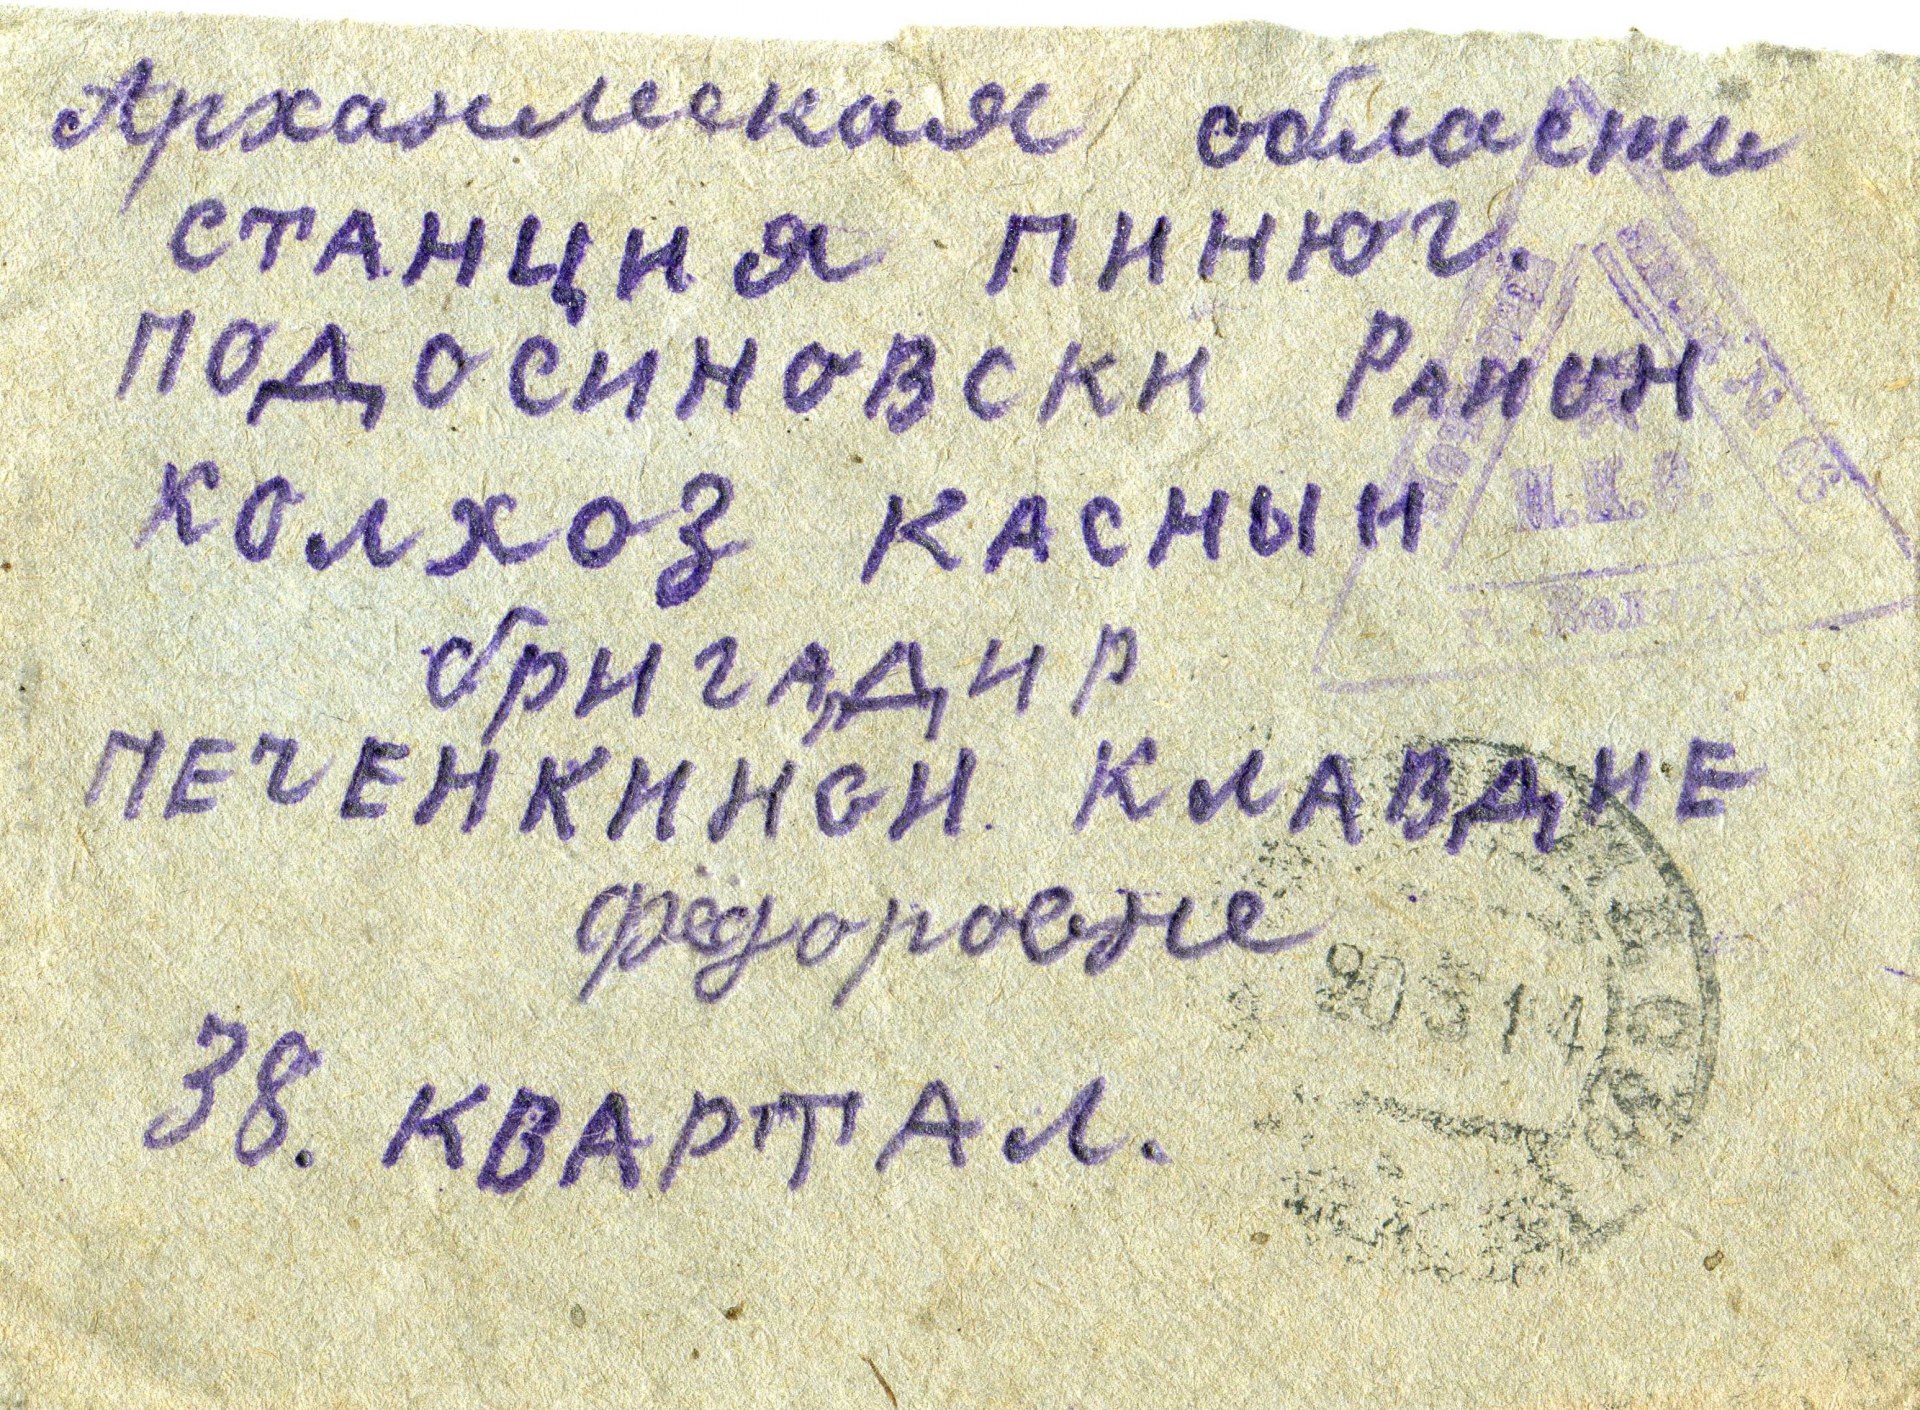 Арханлеская области
СТАНЦИЯ ПИНЮГ.
ПОДОСИНОВСКИ РАИОН
КОЛХОЗ КАСНЫИ
бРИГАДИР
ПЕЧЕНКИНОИ КЛАВДИЕ
Федоровне
38. КВАРТАЛ.
20 5 14